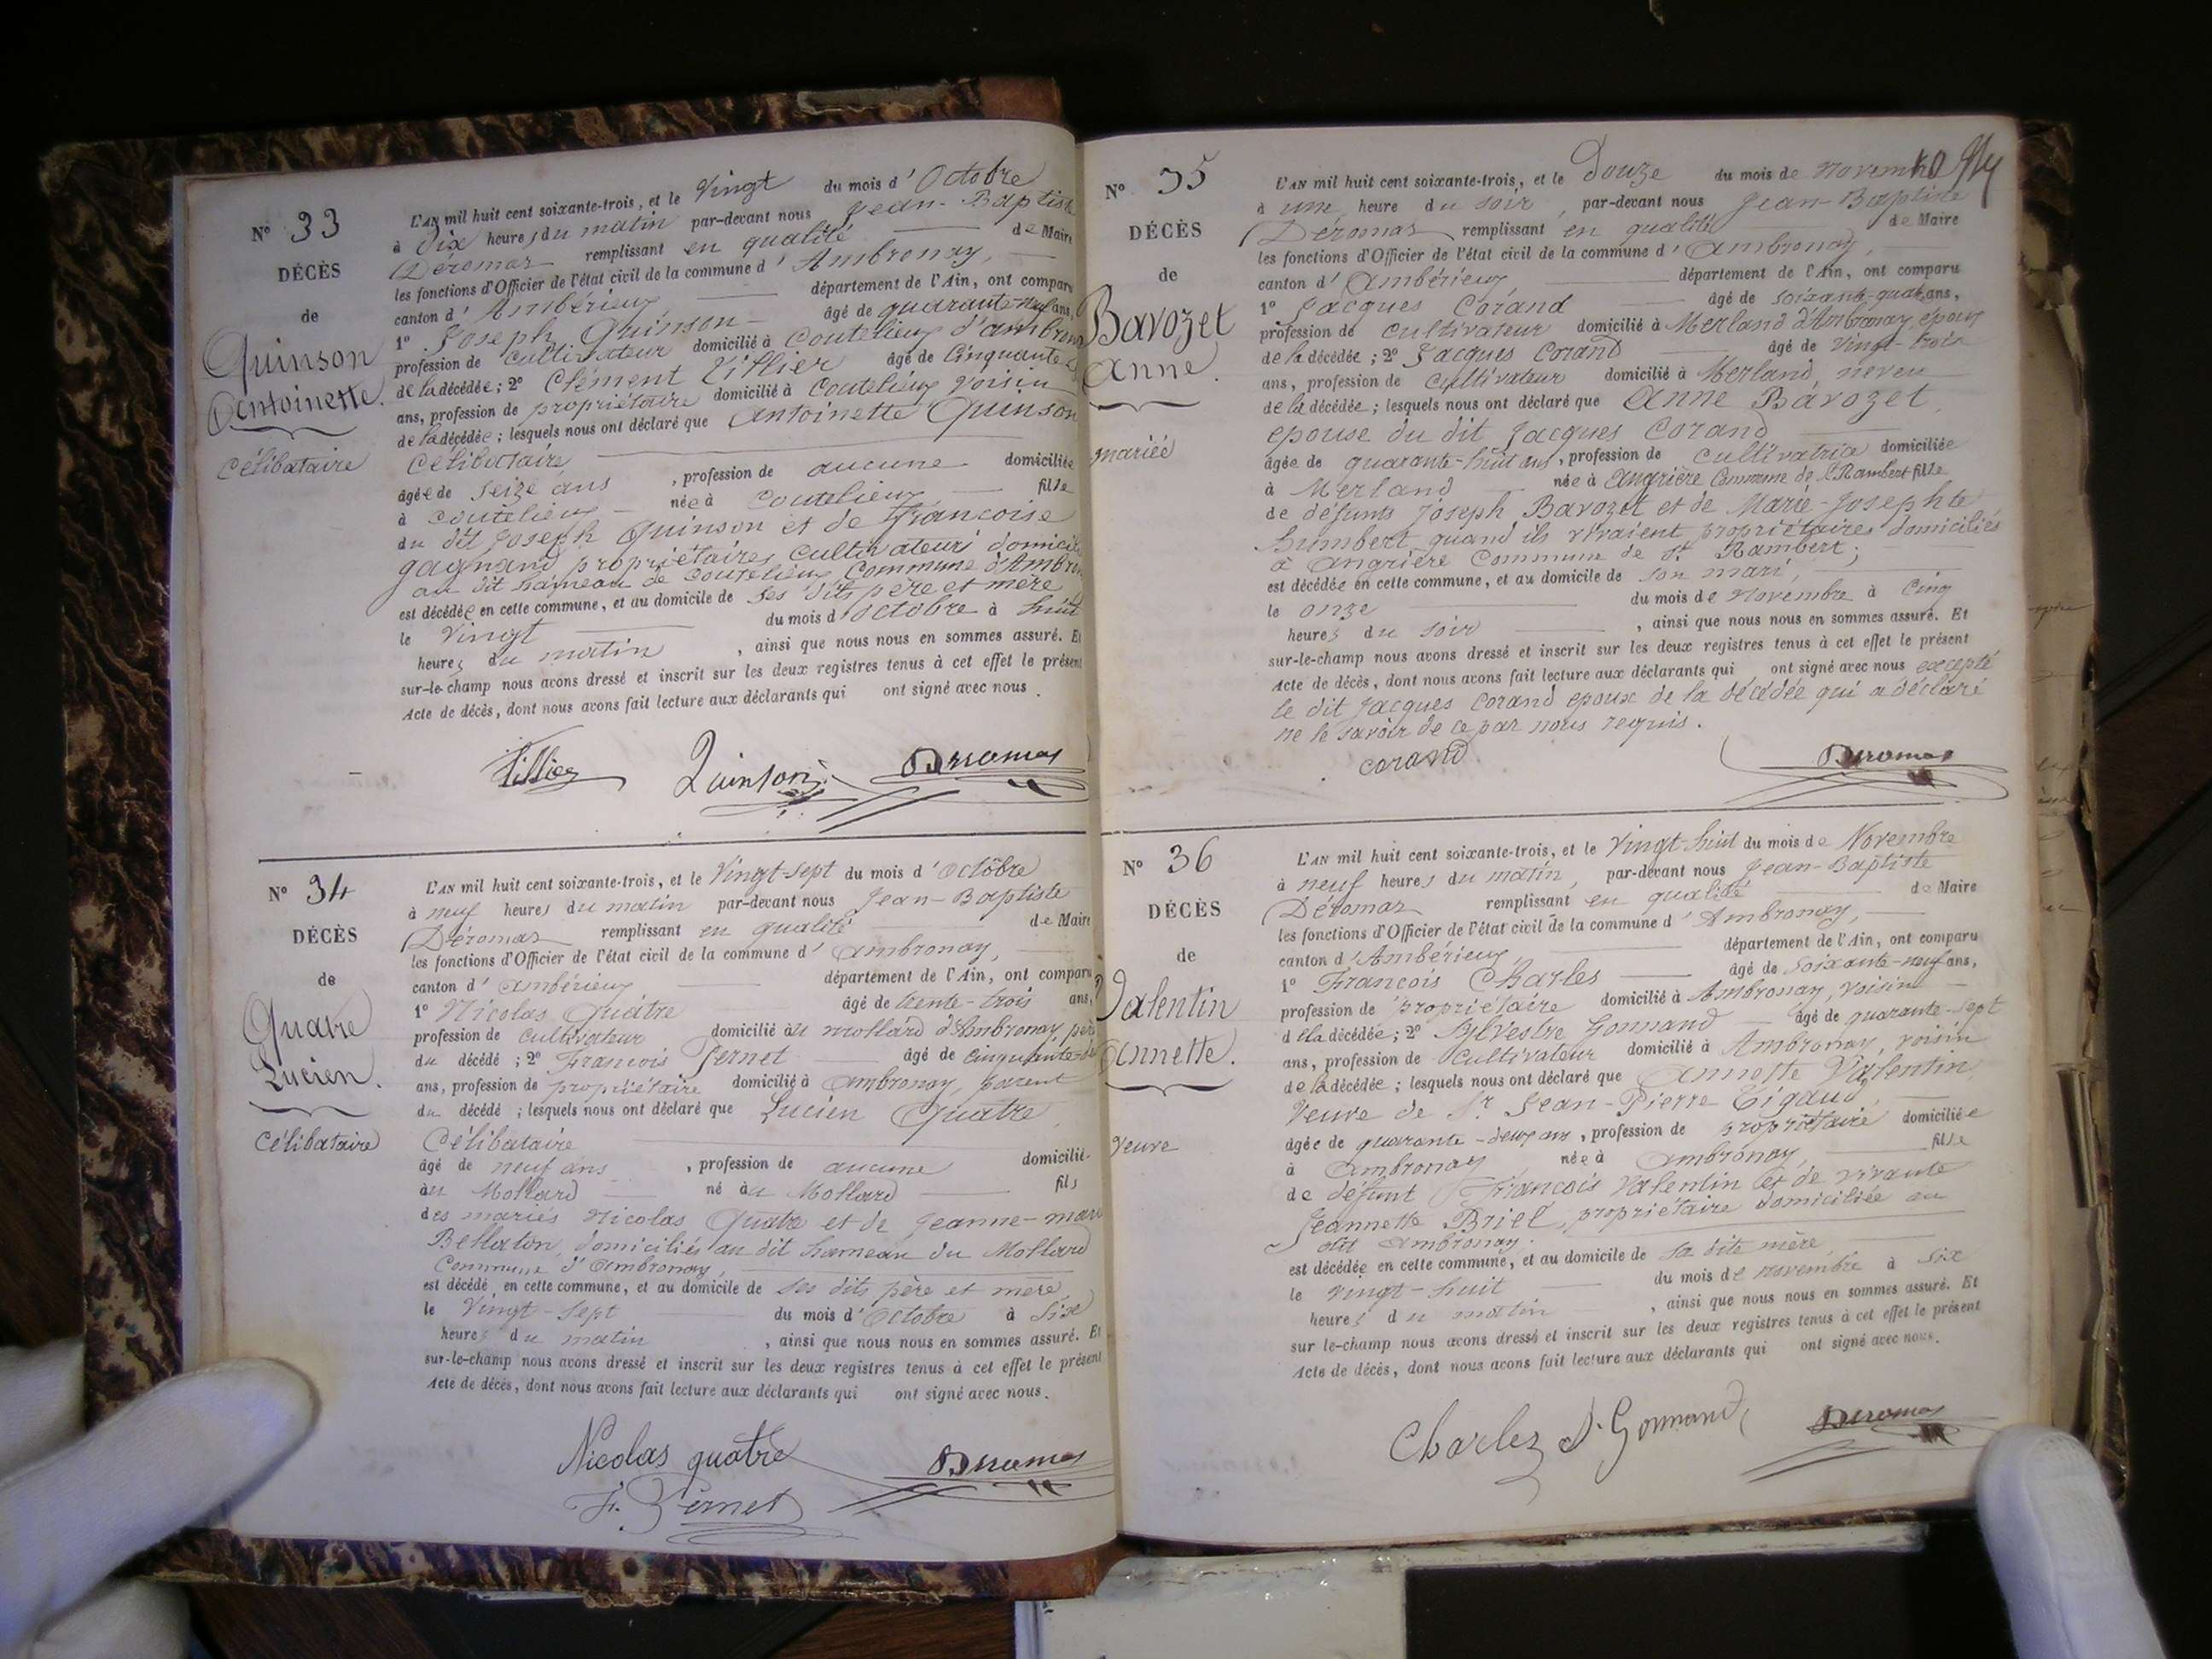 N° 33
DÉCÈS
de
Quinson
Antoinette.
Célibataire
L'AN mil huit cent soixante-trois, et le Vingt du mois d'Octobre
à Dix heures du matin par-devant nous Jean-Baptiste
Déromas remplissant en qualité de Maire
les fonctions d'Officier de l'état civil de la commune d'Ambronay,
canton d'Ambérieux département de l'Ain, ont comparu
1° Joseph Quinson âgé de quarante-neuf ans,
profession de cultivateur domicilié à Coutelieux d'ambronay
de la décédée; 2° Clément Villier âgé de Cinquante
ans, profession de propriétaire domicilié à Coutelieux voisin
de la décédée; lesquels nous ont déclaré que Antoinette Quinson
Célibataire
âgée de seize ans, profession de aucune domiciliée
à Coutelieux née à Coutelieux, fille
du dit Joseph Quinson et de Francoise
gagnand propriétaires cultivateurs domiciliés
au dit hameau de Coutelieux Commune d'Ambronay
est décédée en cette commune, et au domicile de ses dits père et mère
le Vingt du mois d'octobre à huit
heures du matin, ainsi que nous nous en sommes assuré. Et
sur-le-champ nous avons dressé et inscrit sur les deux registres tenus à cet effet le présent
Acte de décès, dont nous avons fait lecture aux déclarants qui ont signé avec nous.
Villier Quinson Deromas
N° 34
DÉCÈS
de
Quatre
Lucien.
Célibataire
L'AN mil huit cent soixante-trois, et le Vingt-sept du mois d'Octobre
à neuf heures du matin par-devant nous Jean-Baptiste
Déromas remplissant en qualité de Maire
les fonctions d'Officier de l'état civil de la commune d'Ambronay,
canton d'Ambérieux département de l'Ain, ont comparu
1° Nicolas Quatre âgé de trente-trois ans,
profession de cultivateur domicilié au mollard d'Ambronay, père
du décédé; 2° Francois Pernet âgé de cinquante
ans, profession de propriétaire domicilié à Ambronay, parent
du décédé; lesquels nous ont déclaré que Lucien Quatre,
Célibataire
âgé de neuf ans, profession de aucune domicilié
au Mollard né au Mollard fils
des mariés Nicolas Quatre et de Jeanne-marie
Bellaton, domiciliés au dit hameau du Mollard
Commune d'Ambronay,
est décédé en cette commune, et au domicile de ses dits père et mère,
le Vingt-sept du mois d'Octobre à Six
heures du matin, ainsi que nous nous en sommes assuré. Et
sur-le-champ nous avons dressé et inscrit sur les deux registres tenus à cet effet le présent
Acte de décès, dont nous avons fait lecture aux déclarants qui ont signé avec nous.
Nicolas quatre Deromas
F. Pernet
N° 35
DÉCÈS
de
Bavozet
Anne.
mariée
L'AN mil huit cent soixante-trois, et le Douze du mois de novembre
à une heure du soir, par-devant nous Jean-Baptiste
Déromas remplissant en qualité de Maire
les fonctions d'Officier de l'état civil de la commune d'Ambronay,
canton d'Ambérieux, département de l'Ain, ont comparu
1° Jacques Corand âgé de soixante-quatre ans,
profession de cultivateur domicilié à Merland d'Ambronay, époux
de la décédée; 2° Jacques Corand âgé de Vingt-trois
ans, profession de cultivateur domicilié à Merland, neveu
de la décédée; lesquels nous ont déclaré que Anne Bavozet,
epouse du dit Jacques Corand
âgée de quarante-huit ans, profession de cultivatrice domiciliée
à Merland née à Angrière Commune de St Rambert fille
de défunts Joseph Bavozet et de Marie-Josephte
humbert, quand ils vivaient propriétaires domiciliés
à Angrière Commune de St Rambert;
est décédée en cette commune, et au domicile de son mari,
le onze du mois de novembre à Cinq
heures du soir, ainsi que nous nous en sommes assuré. Et
sur-le-champ nous avons dressé et inscrit sur les deux registres tenus à cet effet le présent
Acte de décès, dont nous avons fait lecture aux déclarants qui ont signé avec nous excepté
le dit Jacques Corand epoux de la décédée qui a déclaré
ne le savoir de ce par nous requis.
corand Deromas
N° 36
DÉCÈS
de
Valentin
Annette.
Veuve
L'AN mil huit cent soixante-trois, et le Vingt-huit du mois de Novembre
à neuf heures du matin, par-devant nous Jean-Baptiste
Déromas remplissant en qualité de Maire
les fonctions d'Officier de l'état civil de la commune d'Ambronay,
canton d'Ambérieux, département de l'Ain, ont comparu
1° Francois Charles âgé de soixante-neuf ans,
profession de propriétaire domicilié à Ambronay, voisin
de la décédée; 2° Sylvestre Gonnand âgé de quarante-sept
ans, profession de cultivateur domicilié à Ambronay, voisin
de la décédée; lesquels nous ont déclaré que Annette Valentin,
Veuve de Sr Jean-Pierre Tigaud,
âgée de quarante-deux ans, profession de propriétaire domiciliée
à Ambronay, née à Ambronay, fille
de défunt François Valentin et de vivante
Jeannette Briel, propriétaire domiciliée au
dit Ambronay.
est décédée en cette commune, et au domicile de sa dite mère,
le vingt-huit du mois de novembre à six
heures du matin, ainsi que nous nous en sommes assuré. Et
sur le-champ nous avons dressé et inscrit sur les deux registres tenus à cet effet le présent
Acte de décès, dont nous avons fait lecture aux déclarants qui ont signé avec nous.
Charles S. Gonnand Deromas